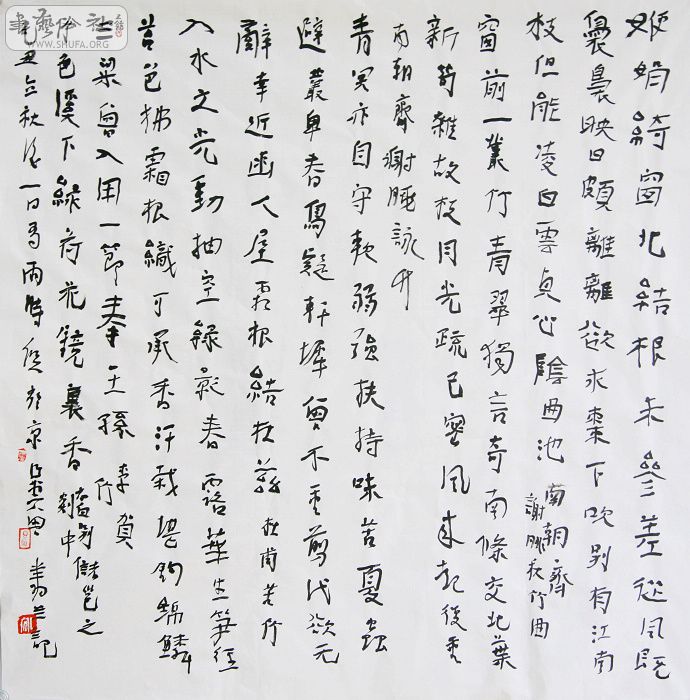 書藝公社
WWW.SHUFA.ORG
娟綺窗北結根未參差從風既
裊裊映日頗離離欲求棗下吹別有江南
枝但能凌白雪貞心蔭曲池
南朝齊
謝朓秋竹曲
窗前一叢竹青翠獨言奇南條交北葉
新筍雜故枝月光疏已密風來起復垂
南朝齊謝朓詠竹
青冥亦自守軟弱強扶持味苦夏蟲
避叢卑春鳥疑軒墀曾不重剪伐欲无
辭幸近幽人屋霜根結在茲 杜甫苦竹
入水文光動抽空綠影春露華生筍徑
苔色拂霜根織可承香汗裁堪釣錦鱗
三梁曾入用一節奉王孫 李賀
竹
竹色溪下綠荷花鏡裏香 李白別儲邕之
剡中
己丑立秋後一日雨時於京